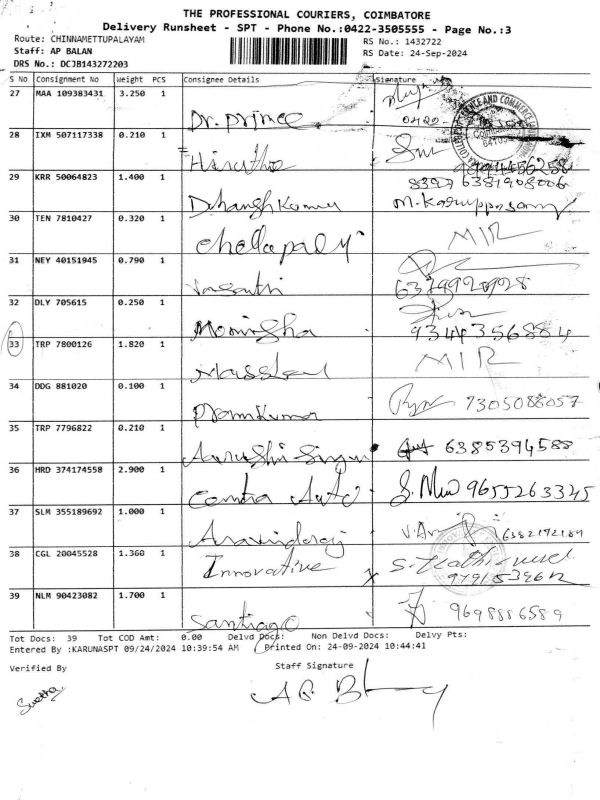 THE PROFESSIONAL COURIERS, COIMBATORE
Delivery Runsheet - SPT - Phone No.:0422-3505555 - Page No.:3
Route: CHINNAMETTUPALAYAM
RS No.: 1432722
Staff: AP BALAN
RS Date: 24-Sep-2024
DRS No.: DCJB143272203
S No Consignment No Weight PCS Consignee Details Signature
27 MAA 109383431 3.250 1 Dr. Prince
28 IXM 507117338 0.210 1
29 KRR 50064823 1.400 1 Dhansh Kumar M. Karuppasamy
30 TEN 7810427 0.320 1 Chellapady MIR
31 NEY 40151945 0.790 1 Vasanthi
32 DLY 705615 0.250 1 Monisha 9344356884
33 TRP 7800126 1.820 1 MIR
34 DDG 881020 0.100 1 Premkumar 7305088057
35 TRP 7796822 0.210 1 Aarushi 6385394588
36 HRD 374174558 2.900 1 Auto 9655263345
37 SLM 355189692 1.000 1 Aravindaraj 6382192189
38 CGL 20045528 1.360 1 Innovative
39 NLM 90423082 1.700 1 Santiago 9698886589
Tot Docs: 39 Tot COD Amt: 0.00 Delvd Docs: Non Delvd Docs: Delvy Pts:
Entered By :KARUNASPT 09/24/2024 10:39:54 AM Printed On: 24-09-2024 10:44:41
Verified By Staff Signature
Swetha